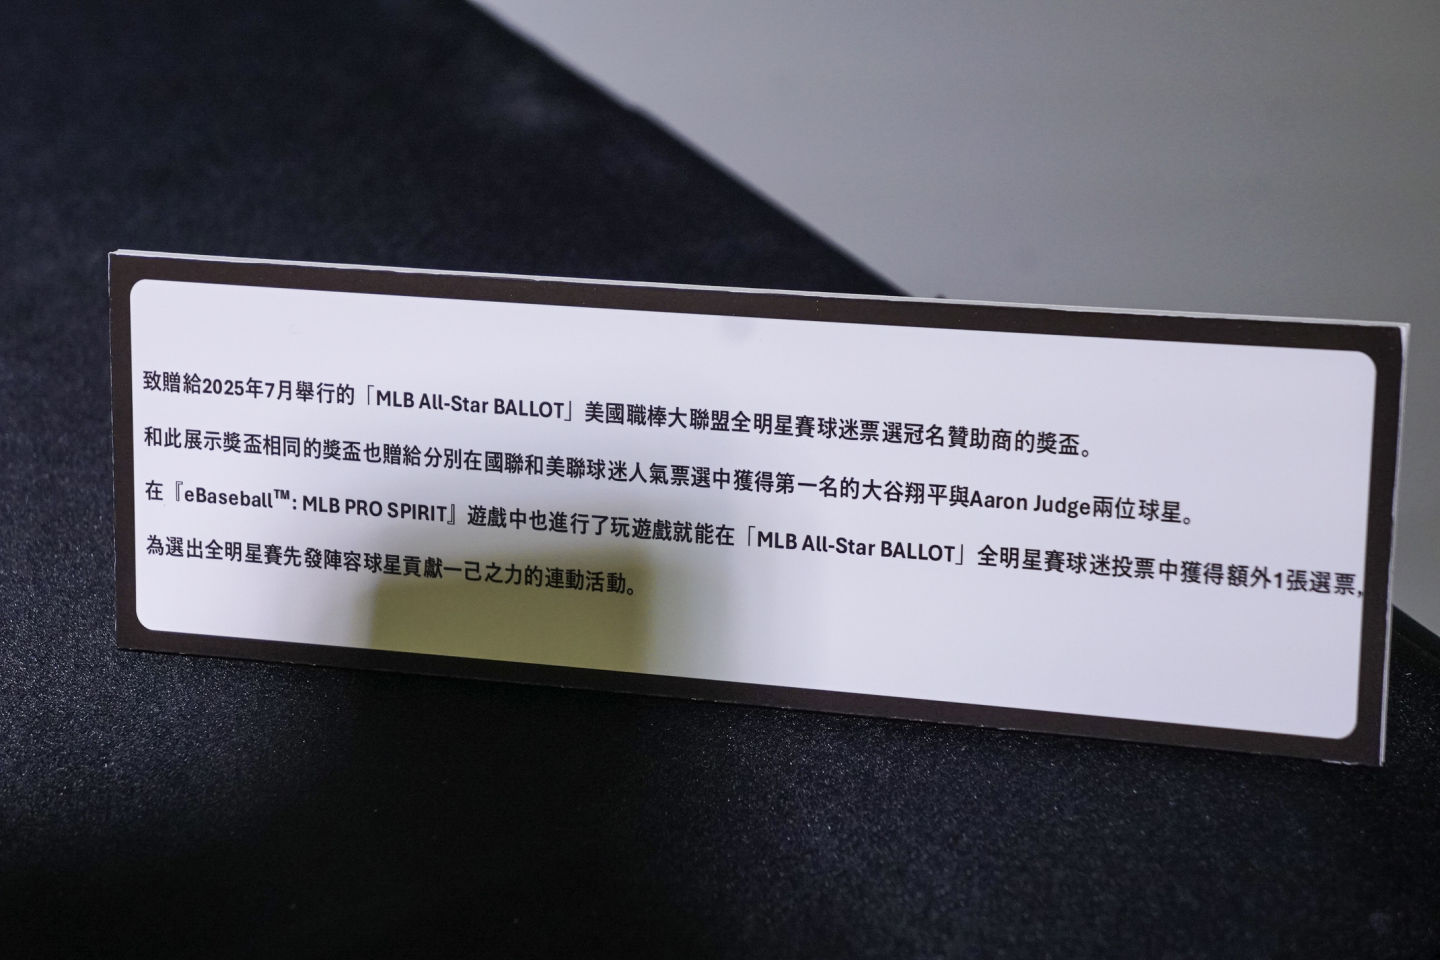 致贈給2025年7月舉行的「MLB All-Star BALLOT」美國職棒大聯盟全明星賽球迷票選冠名贊助商的獎盃。
和此展示獎盃相同的獎盃也贈給分別在國聯和美聯球迷人氣票選中獲得第一名的大谷翔平與Aaron Judge兩位球星。
在『eBaseball™: MLB PRO SPIRIT』遊戲中也進行了玩遊戲就能在「MLB All-Star BALLOT」全明星賽球迷投票中獲得額外1張選票,
為選出全明星賽先發陣容球星貢獻一己之力的連動活動。